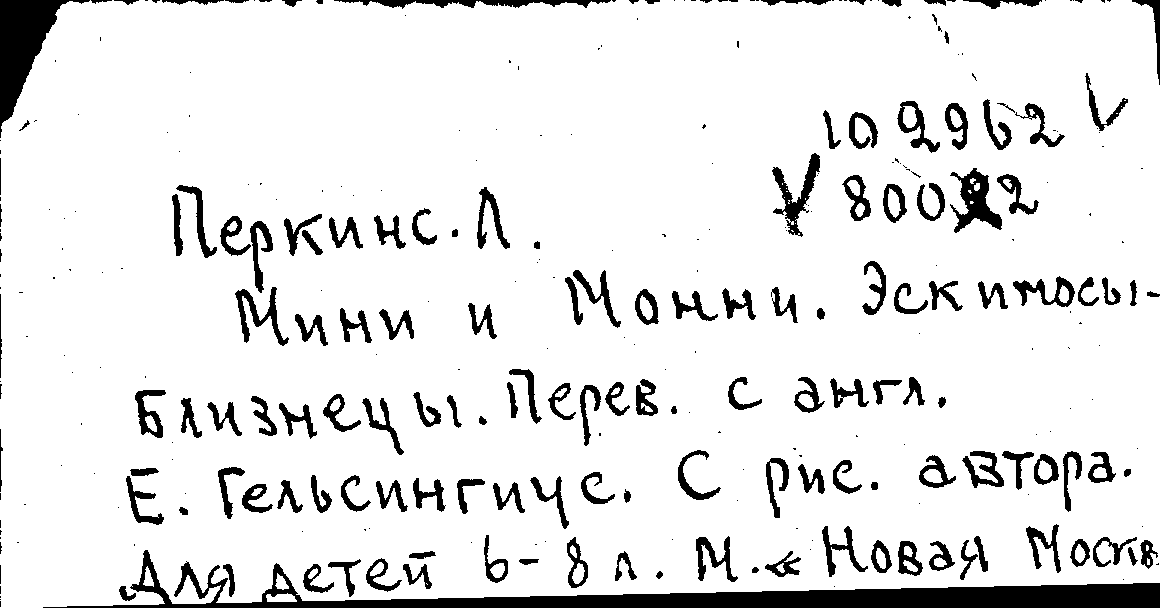 109962 √
√ 80022
Перкинс. Л.
Мини и Монни. Эскимосы-
Близнецы. Перев. с англ.
Е. Гельсингиус. С рис. автора.
Для детей 6-8 л. М. « Новая Москв